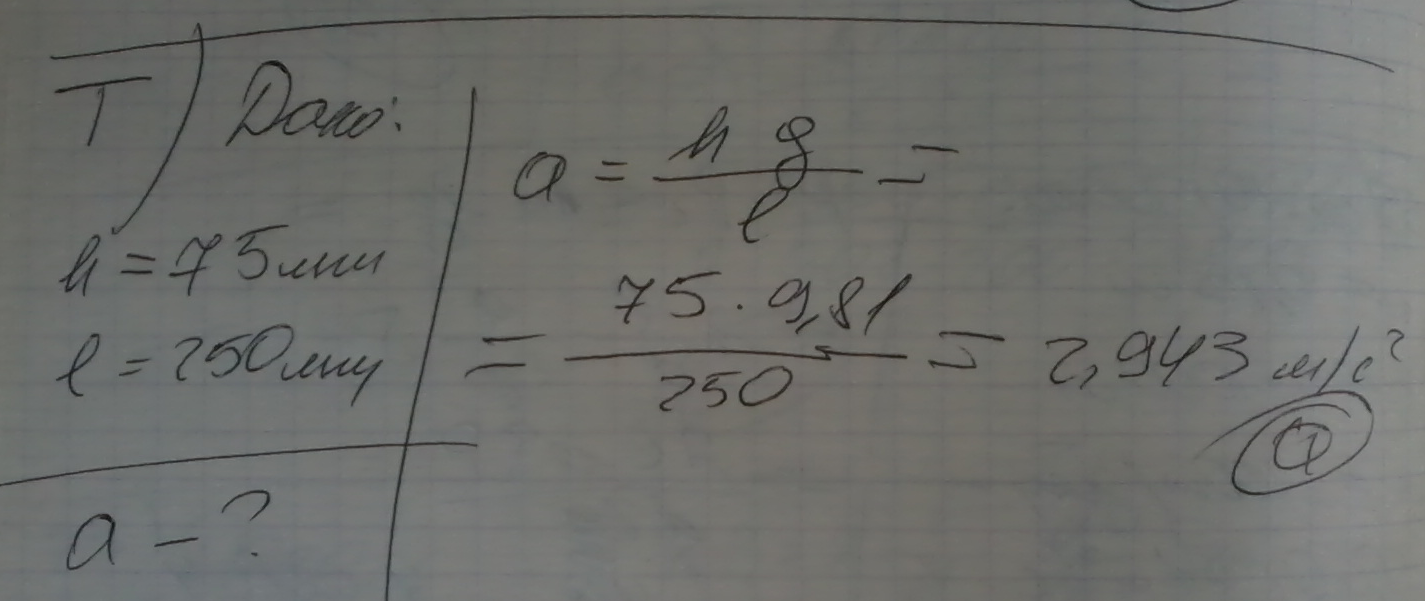 T) Дано:
h = 75мм
l = 250мм
a - ?
a = h g / l =
= 75 · 9,81 / 250 = 2,943 м/с²